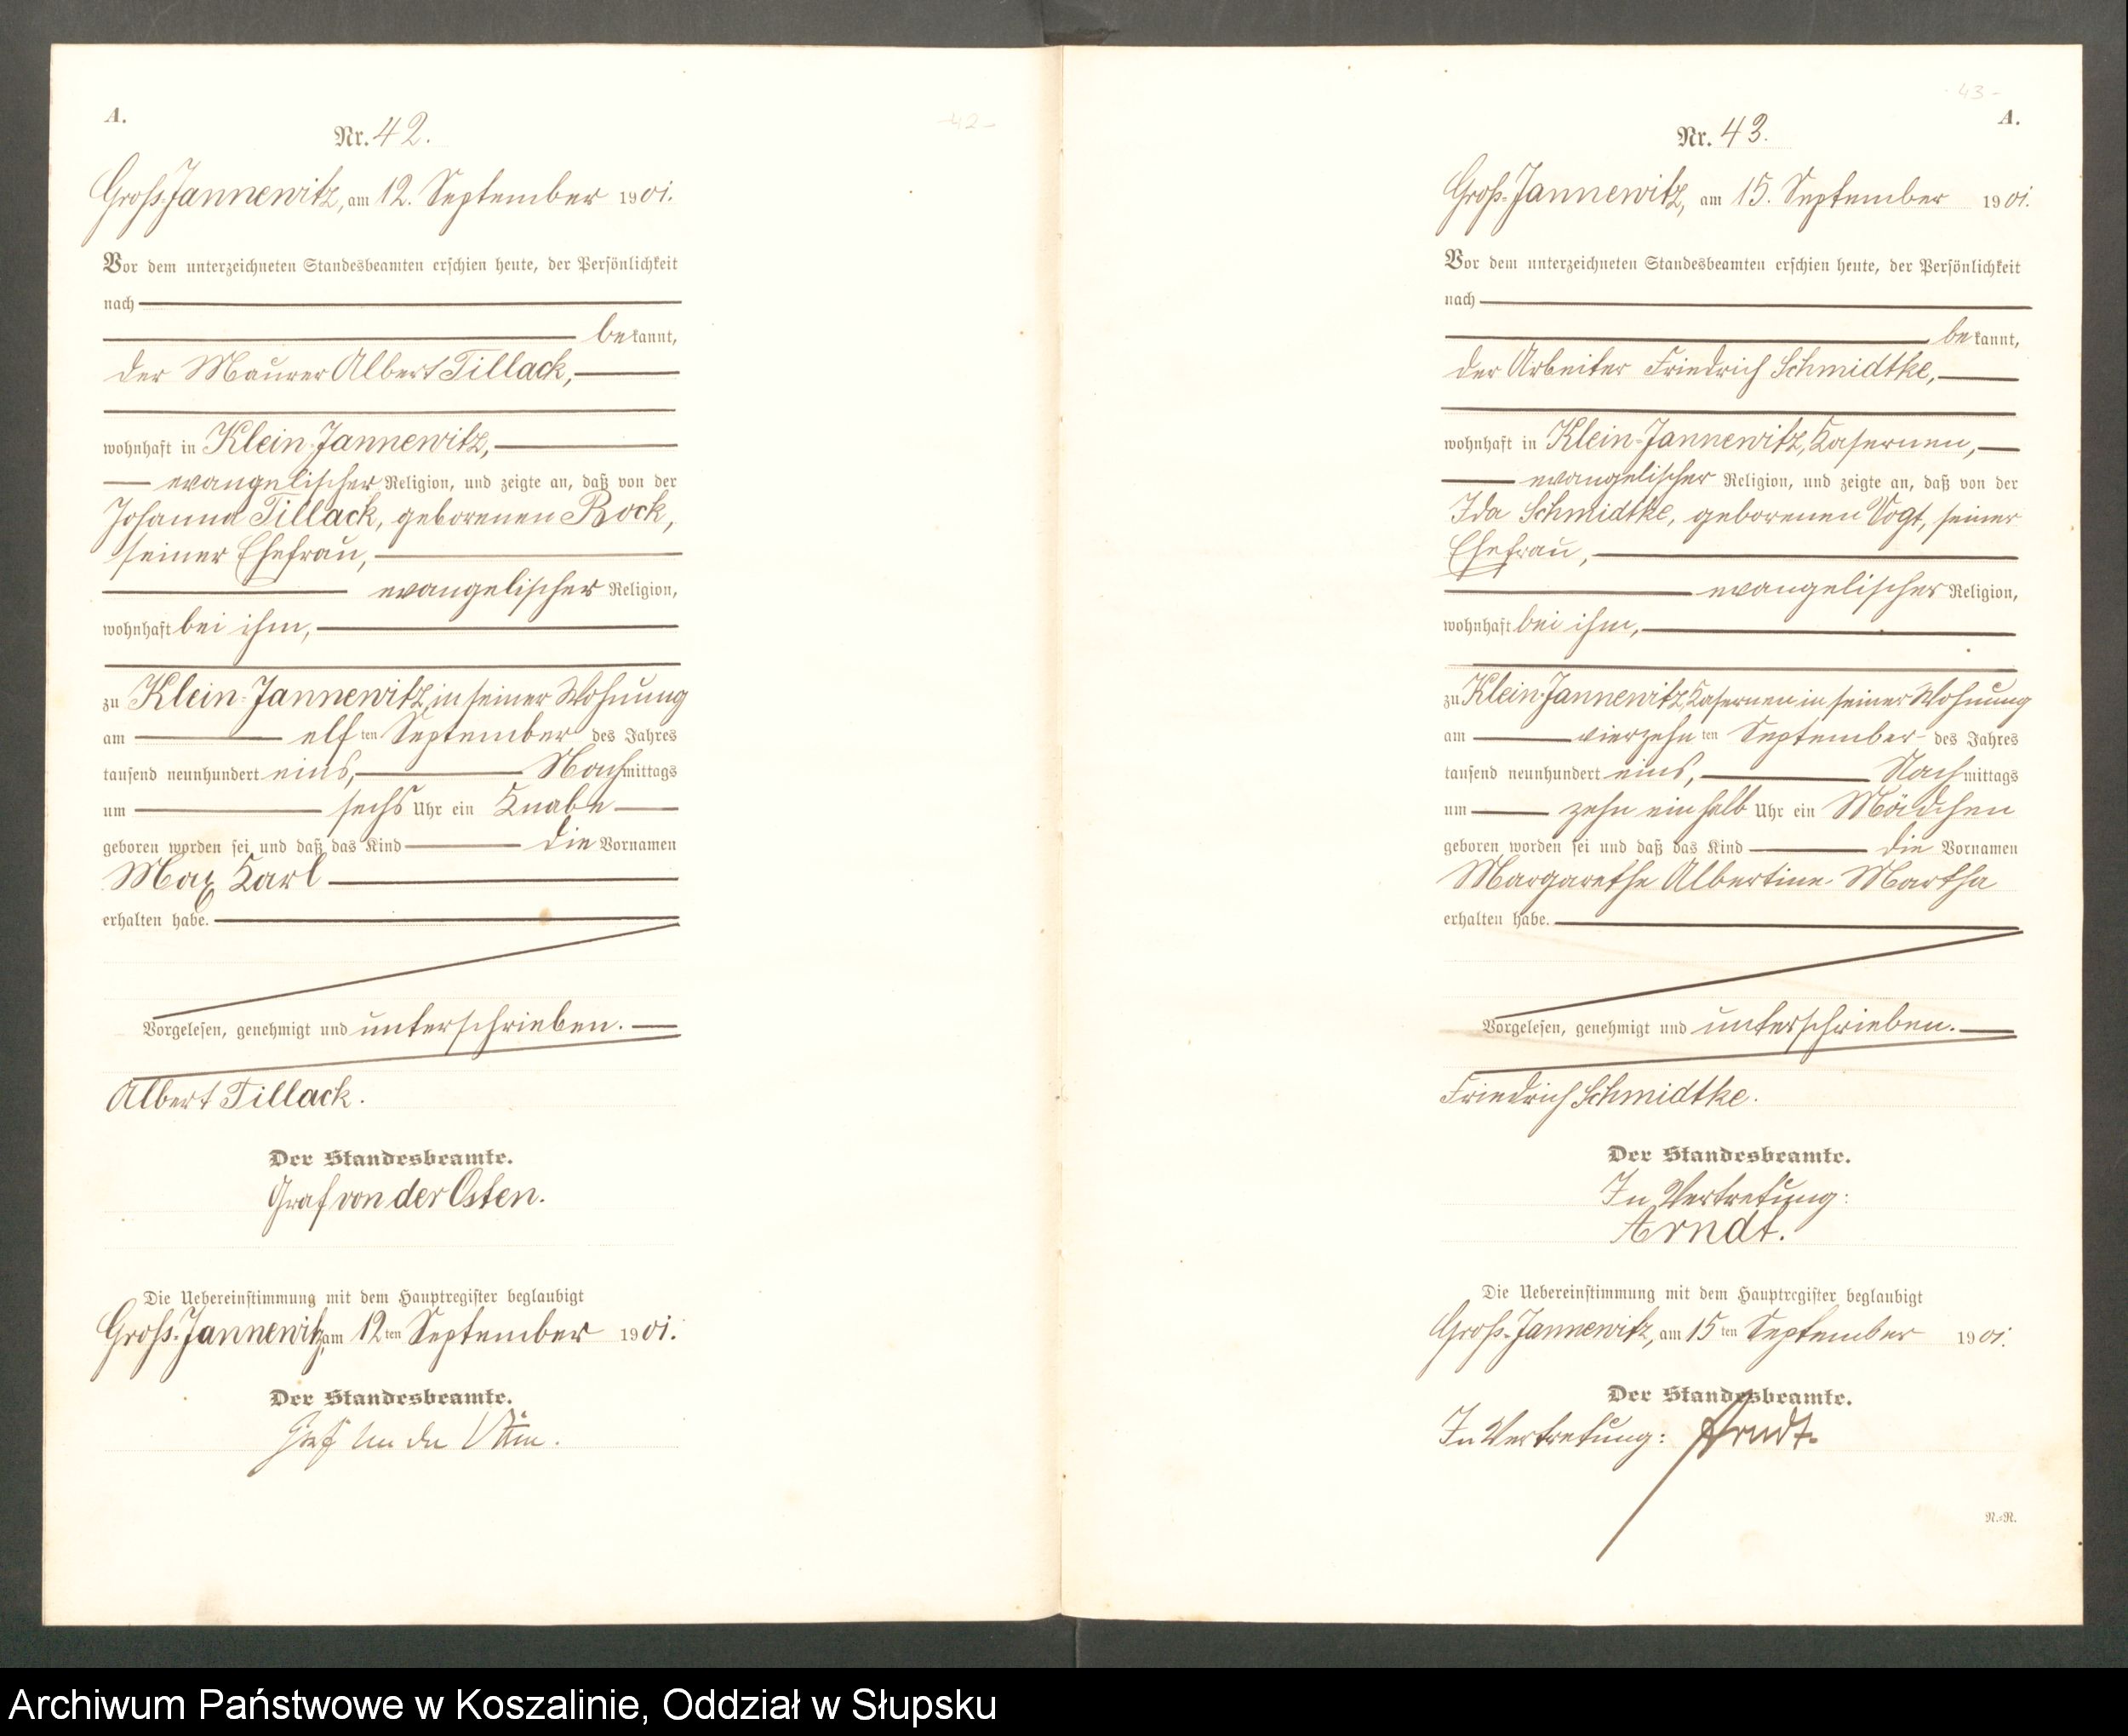 A.
Nr. 42.
Groß-Jannewitz, am 12. September 1901.
Vor dem unterzeichneten Standesbeamten erschien heute, der Persönlichkeit
nach
bekannt,
der Maurer Albert Tillack,
wohnhaft in Klein-Jannewitz,
evangelischer Religion, und zeigte an, daß von der
Johanna Tillack, geborenen Bock,
seiner Ehefrau,
evangelischer Religion,
wohnhaft bei ihm,
zu Klein-Jannewitz, in seiner Wohnung
am elften September des Jahres
tausend neunhundert eins, Nachmittags
um sechs Uhr ein Knabe
geboren worden sei und daß das Kind die Vornamen
Max Karl
erhalten habe.
Vorgelesen, genehmigt und unterschrieben.
Albert Tillack.
Der Standesbeamte.
Graf von der Osten.
Die Uebereinstimmung mit dem Hauptregister beglaubigt
Groß-Jannewitz, am 12ten September 1901.
Der Standesbeamte.
Graf von der Osten.
-42-
-43-
A.
Nr. 43.
Groß-Jannewitz, am 15. September 1901.
Vor dem unterzeichneten Standesbeamten erschien heute, der Persönlichkeit
nach
bekannt,
der Arbeiter Friedrich Schmidtke,
wohnhaft in Klein-Jannewitz, Kasernen,
evangelischer Religion, und zeigte an, daß von der
Ida Schmidtke, geborenen Vogt, seiner
Ehefrau,
evangelischer Religion,
wohnhaft bei ihm,
zu Klein-Jannewitz, Kasernen in seiner Wohnung
am vierzehnten September des Jahres
tausend neunhundert eins, Nachmittags
um zehn ein halb Uhr ein Mädchen
geboren worden sei und daß das Kind die Vornamen
Margarethe Albertine Martha
erhalten habe.
Vorgelesen, genehmigt und unterschrieben.
Friedrich Schmidtke.
Der Standesbeamte.
In Vertretung:
Arndt.
Die Uebereinstimmung mit dem Hauptregister beglaubigt
Groß-Jannewitz, am 15ten September 1901.
Der Standesbeamte.
In Vertretung: Arndt.
N.-R.
Archiwum Państwowe w Koszalinie, Oddział w Słupsku